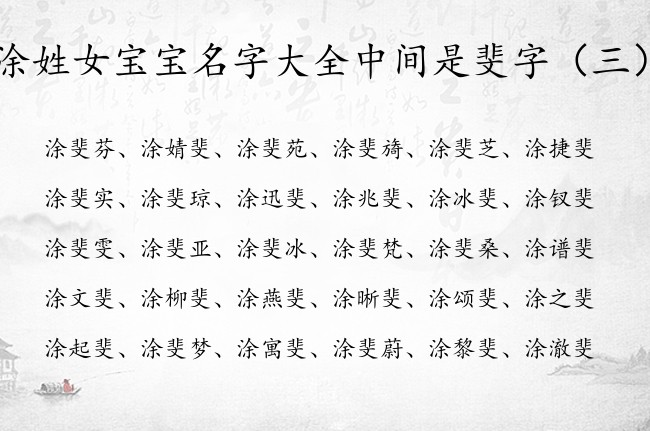 涂姓女宝宝名字大全中间是斐字（三）
涂斐芬、涂婧斐、涂斐苑、涂斐旖、涂斐芝、涂捷斐
涂斐实、涂斐琼、涂迅斐、涂兆斐、涂冰斐、涂钗斐
涂斐雯、涂斐亚、涂斐冰、涂斐梵、涂斐桑、涂谱斐
涂文斐、涂柳斐、涂燕斐、涂晰斐、涂颂斐、涂之斐
涂起斐、涂斐梦、涂寓斐、涂斐蔚、涂黎斐、涂澈斐